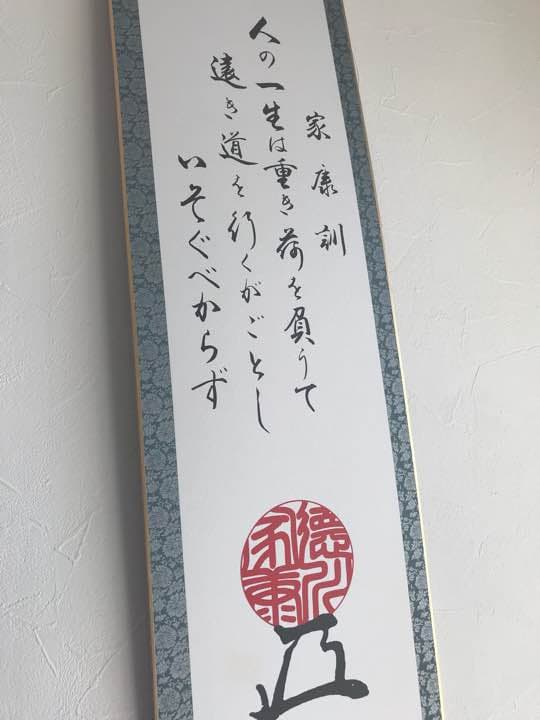 家康訓
人の一生は重き荷を負うて
遠き道を行くがごとし
いそぐべからず
德川
家康